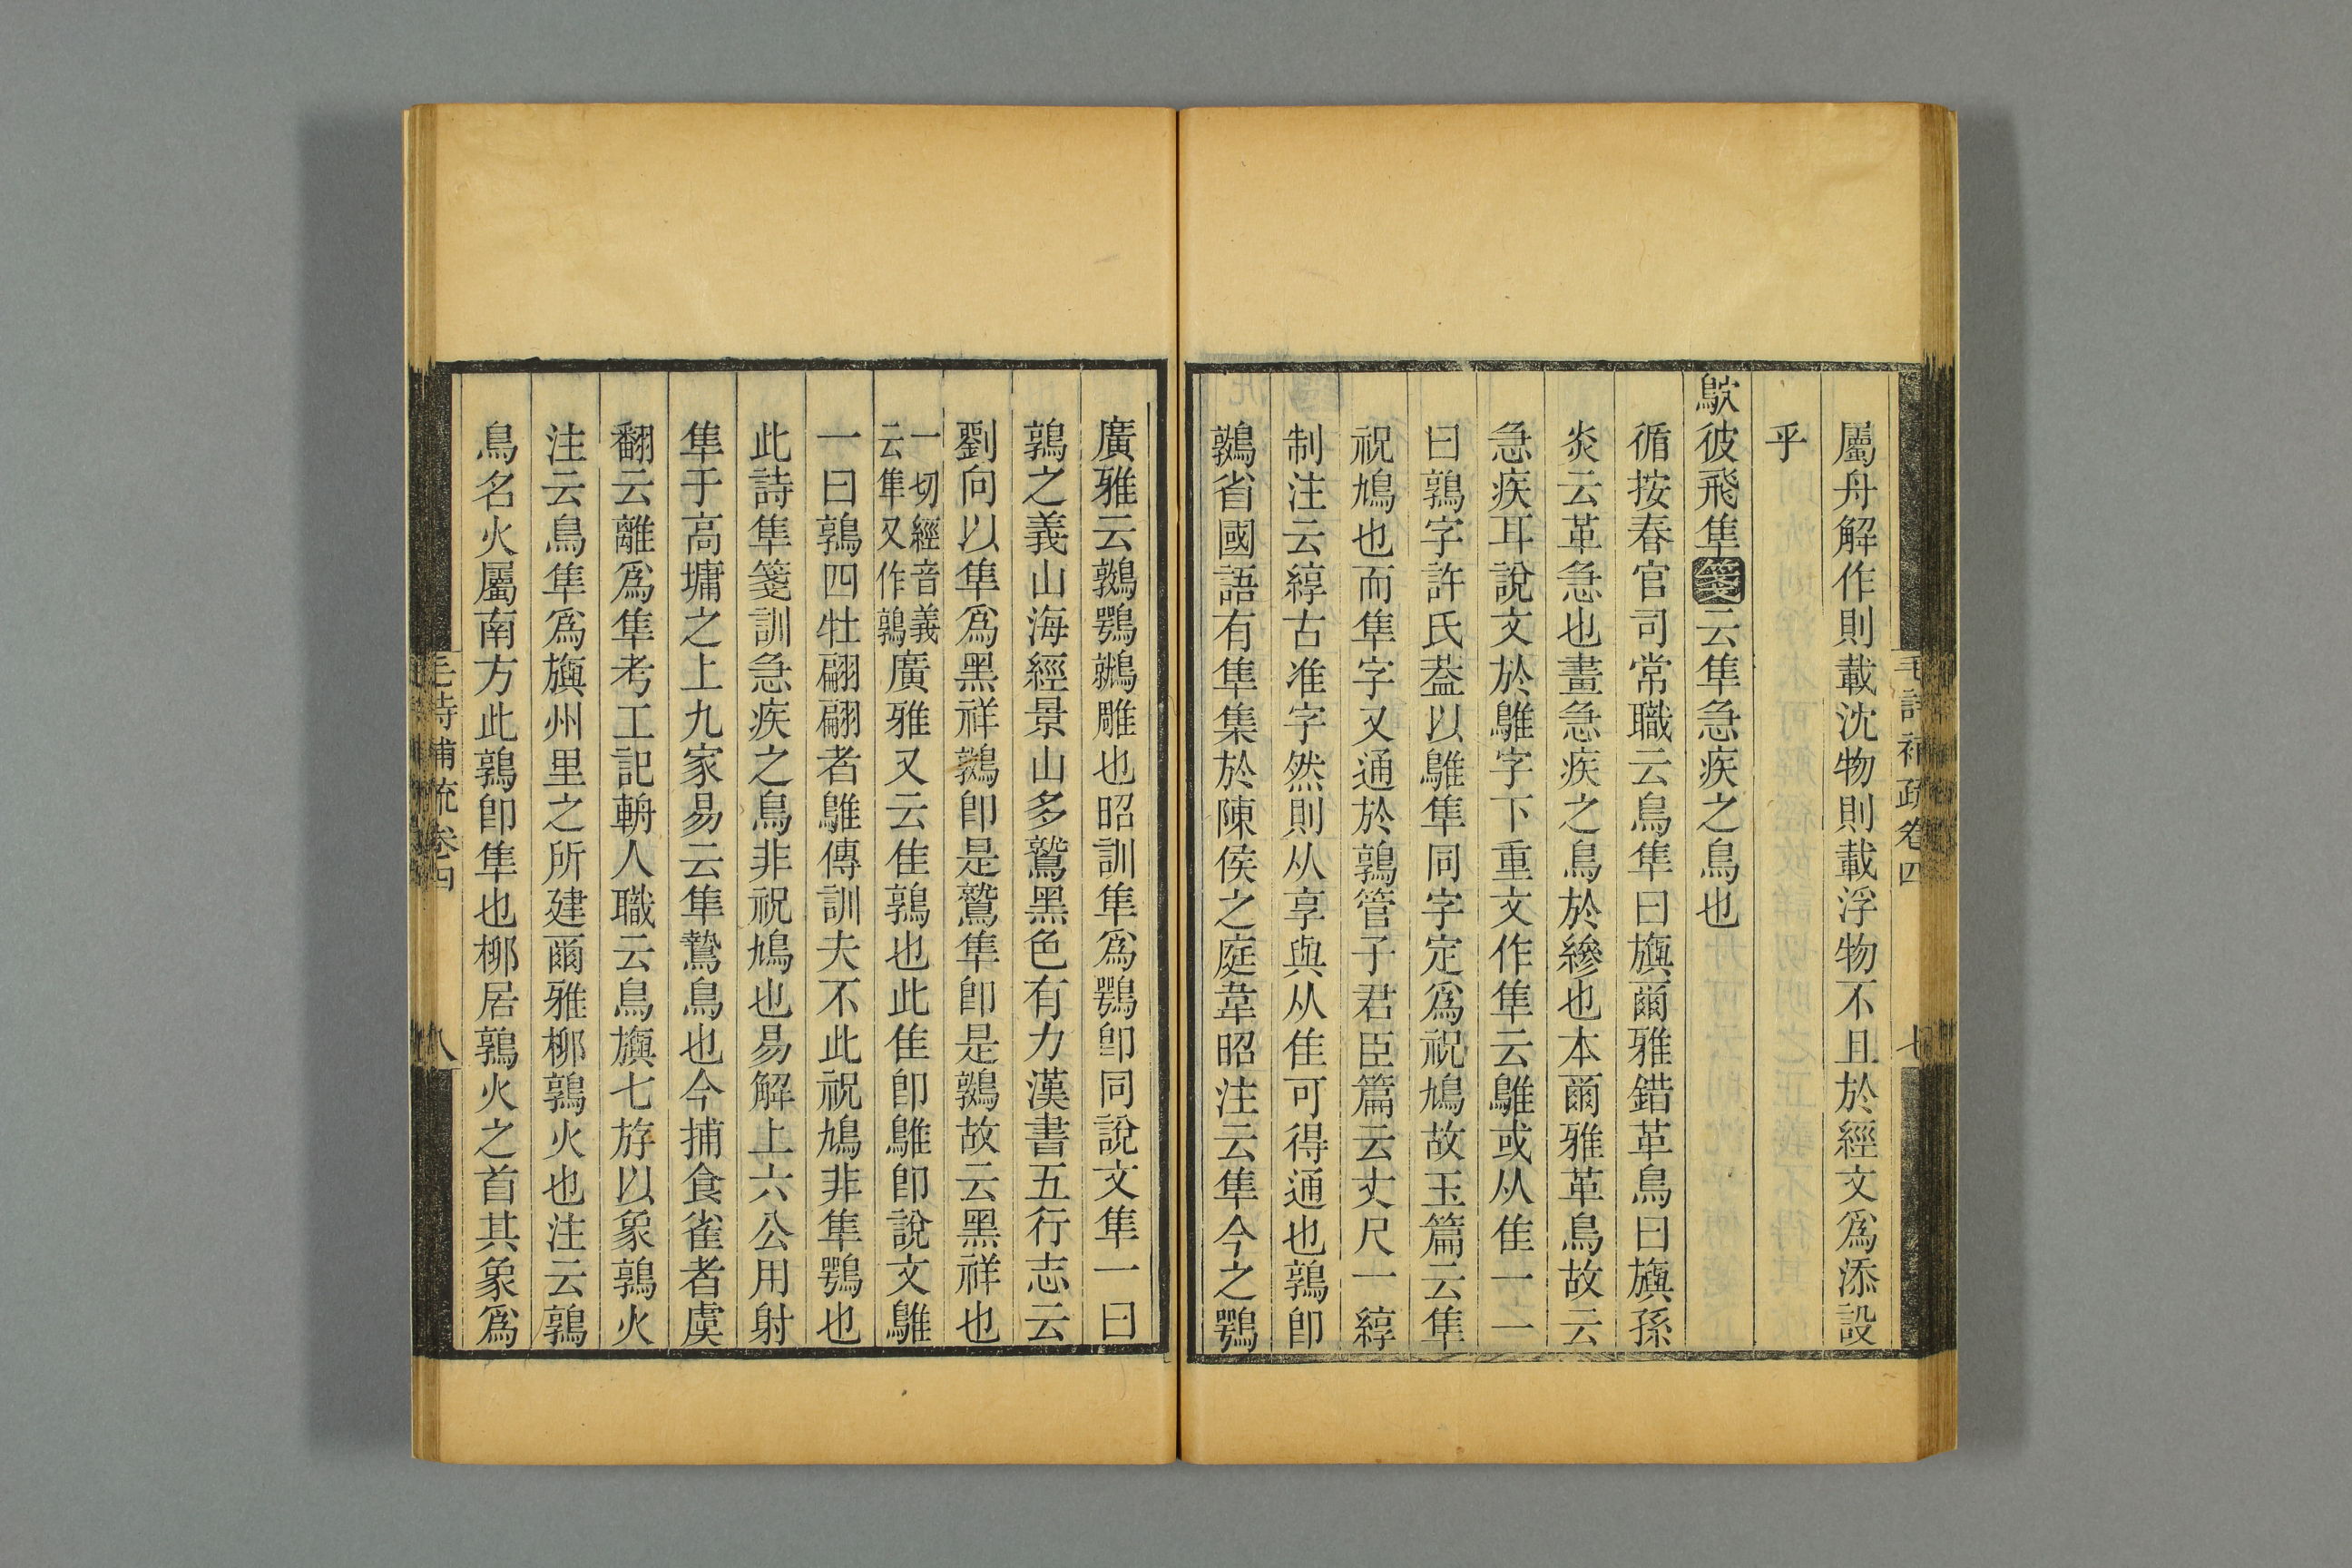 毛詩補疏卷四 七
屬舟解作則載沈物則載浮物不且於經文爲添設
乎
鴥彼飛隼箋云隼急疾之鳥也
循按春官司常職云鳥隼曰旟爾雅錯革鳥曰旟孫
炎云革急也畫急疾之鳥於縿也本爾雅革鳥故云
急疾耳說文於鵻字下重文作隼云鵻或从隹一一
曰鶉字許氏葢以鵻隼同字定爲祝鳩故玉篇云隼
祝鳩也而隼字又通於鶉管子君臣篇云丈尺一綧
制注云綧古准字然則从享與从隹可得通也鶉卽
鷻省國語有隼集於陳侯之庭韋昭注云隼今之鶚
廣雅云鷻鶚鷲雕也昭訓隼爲鶚卽同說文隼一曰
鶉之義山海經景山多鷲黑色有力漢書五行志云
劉向以隼爲黑祥鷻卽是鷲隼卽是鷻故云黑祥也
一切經音義云隼又作鶉廣雅又云隹鶉也此隹卽鵻卽說文鵻
一曰鶉四牡翩翩者鵻傳訓夫不此祝鳩非隼鶚也
此詩隼箋訓急疾之鳥非祝鳩也易解上六公用射
隼于高墉之上九家易云隼鷙鳥也今捕食雀者虞
翻云離爲隼考工記輈人職云鳥旟七斿以象鶉火
注云鳥隼爲旟州里之所建爾雅柳鶉火也注云鶉
鳥名火屬南方此鶉卽隼也柳居鶉火之首其象爲
毛詩補疏卷四 八